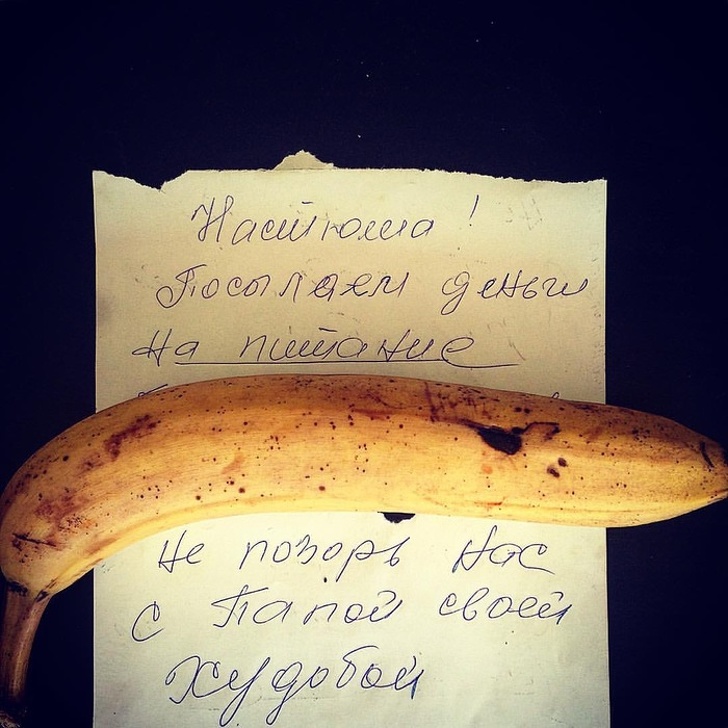 Настюша!
Посылаем деньги
на питание
Не позорь нас
с Папой своей
худобой